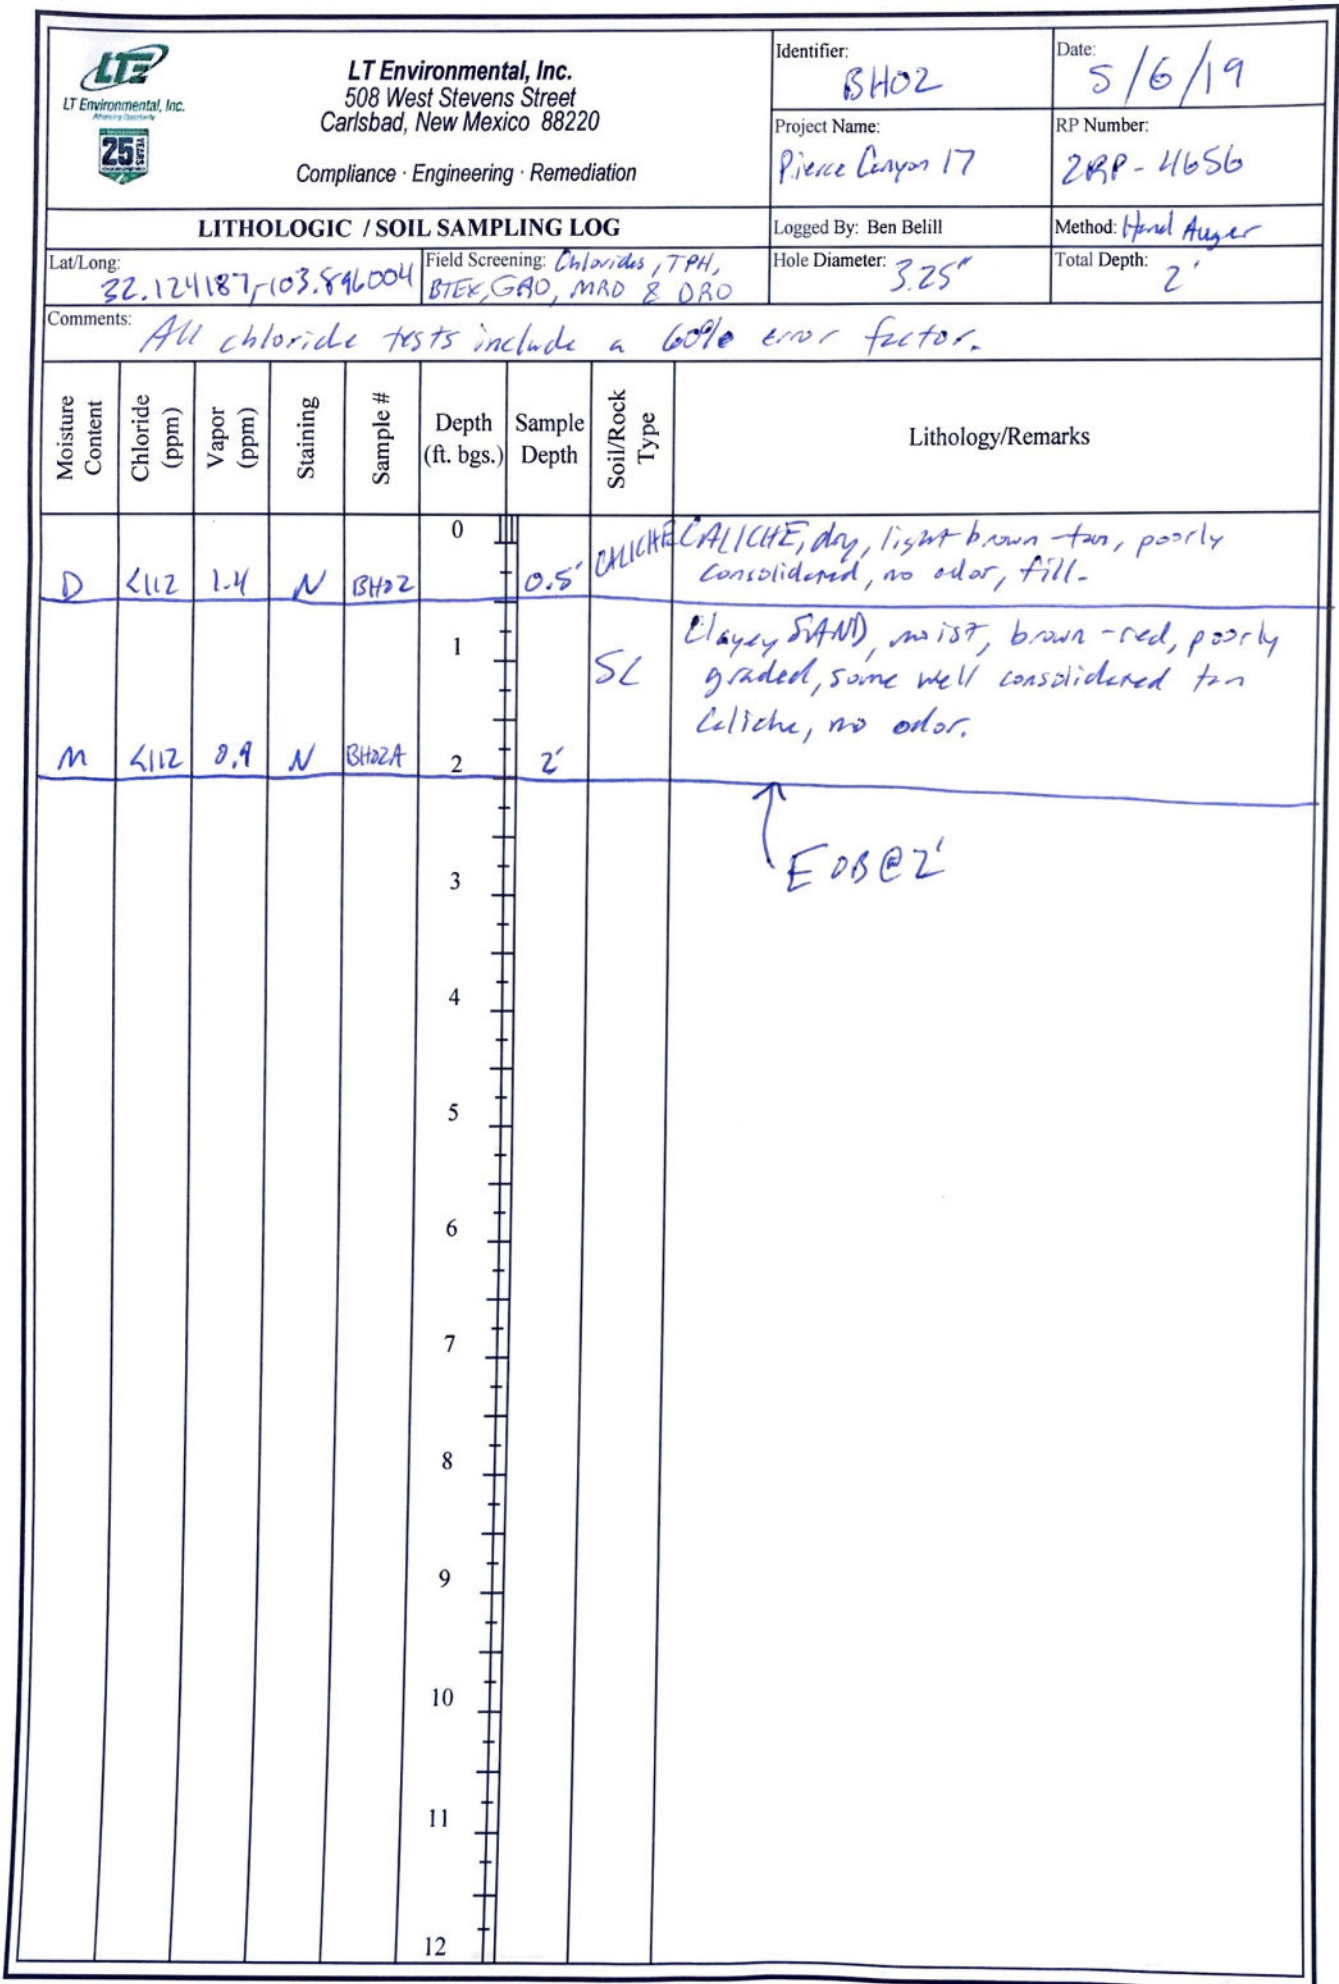 LTE
LT Environmental, Inc.
Advancing Opportunity
25 YEARS
LT Environmental, Inc.
508 West Stevens Street
Carlsbad, New Mexico 88220
Compliance · Engineering · Remediation
Identifier: BH02
Date: 5/6/19
Project Name: Pierce Canyon 17
RP Number: 2RP-4656
LITHOLOGIC / SOIL SAMPLING LOG
Logged By: Ben Belill
Method: Hand Auger
Lat/Long: 32.124187,-103.896004
Field Screening: Chlorides, TPH,
BTEX, GRO, MRO & DRO
Hole Diameter: 3.25"
Total Depth: 2'
Comments: All chloride tests include a 60% error factor.
Moisture Content
Chloride (ppm)
Vapor (ppm)
Staining
Sample #
Depth (ft. bgs.)
Sample Depth
Soil/Rock Type
Lithology/Remarks
0
CALICHE CALICHE, dry, light brown-tan, poorly
consolidated, no odor, fill.
D <112 1.4 N BH02 0.5'
1
SC Clayey SAND, moist, brown-red, poorly
graded, some well consolidated tan
Caliche, no odor.
M <112 0.9 N BH02A 2 2'
EOB@2'
3
4
5
6
7
8
9
10
11
12